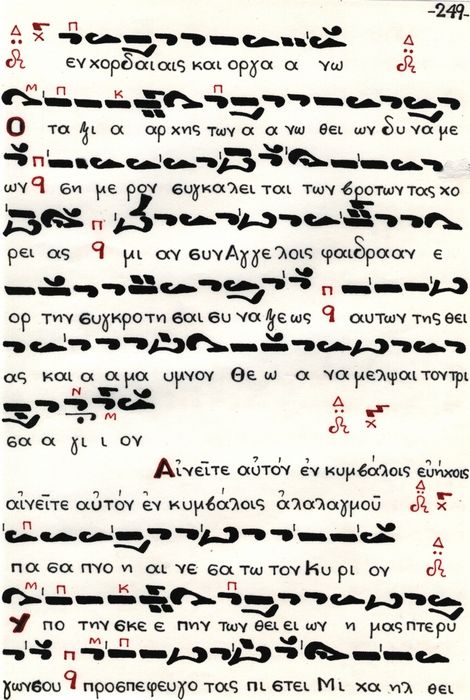 -249-
εν χορδαι αις και οργα α νω
Ο τα ξι α αρ χης των α α νω θει ων δυ να με
ων σή με ρον συγκαλει ται των βροτων τας χο
ρει ας μι αν συν Αγγε λοις φαιδρααν ε
ορ την συγκρο τη σαι συ να ξε ως αυτων της θει
ας και α α μα υμνον Θε ω α να μελψαι τον τρι
σα α γι ι ον
Αἰνεῖτε αὐτόν ἐν κυμβάλοις εὐήχοις
αἰνεῖτε αὐτόν ἐν κυμβάλοις ἀλαλαγμοῦ
πα σα πνο η αι νε σα τω τον Κυ ρι ον
Υ πο την σκε ε πην των θει ει ων η μας πτερυ
γων σου προσπεφευγο τας πι στει Μι χα ηλ θει